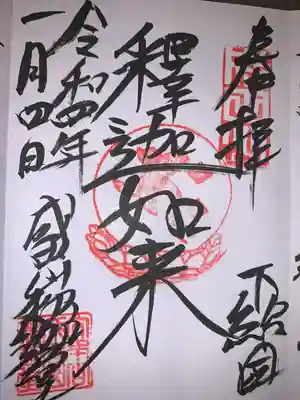 奉拝
下総国
釋迦如来
令和四年
一月四日